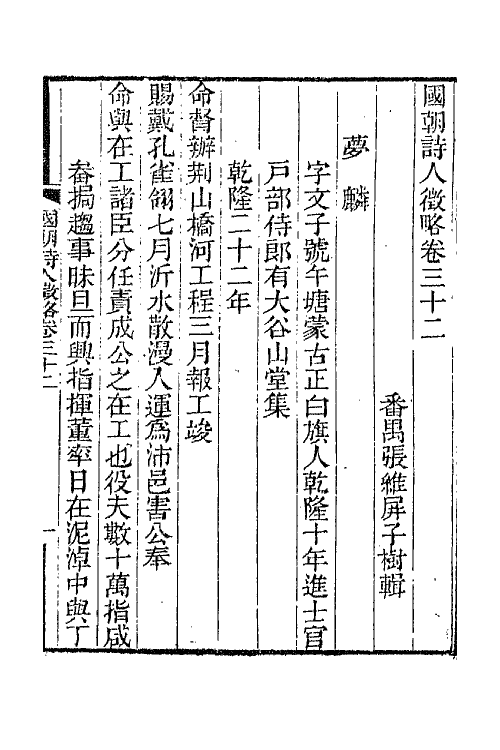 國朝詩人徵略卷三十二
番禺張維屏子樹輯
夢麟
字文子號午塘蒙古正白旗人乾隆十年進士官
戶部侍郎有大谷山堂集
乾隆二十二年
命督辦荆山橋河工程三月報工竣
賜戴孔雀翎七月沂水散漫入運爲沛邑害公奉
命與在工諸臣分任責成公之在工也役夫數十萬指咸
畚挶趨事昧旦而興指揮董率日在泥淖中與丁
國朝詩人徵略卷三十二
一